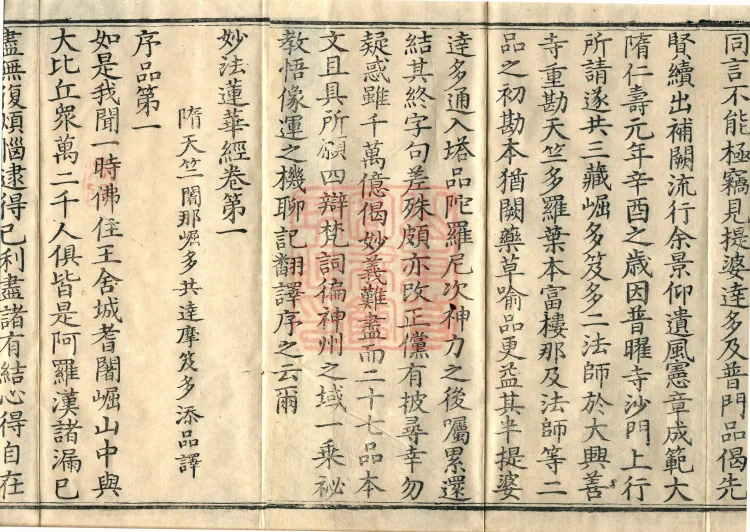 同言不能極竊見提婆達多及普門品偈先
賢續出補闕流行余景仰遺風憲章成範大
隋仁壽元年辛酉之歲因普曜寺沙門上行
所請遂共三藏崛多笈多二法師於大興善
寺重勘天竺多羅葉本富樓那及法師等二
品之初勘本猶闕藥草喻品更益其半提婆
達多通入塔品陀羅尼次神力之後囑累還
結其終字句差殊頗亦改正儻有披尋幸勿
疑惑雖千萬億偈妙義難盡而二十七品本
文且具所願四辯梵詞徧神州之域一乘祕
教悟像運之機聊記翻譯序之云爾
妙法蓮華經卷第一
隋天竺闍那崛多共達摩笈多添品譯
序品第一
如是我聞一時佛住王舍城耆闍崛山中與
大比丘眾萬二千人俱皆是阿羅漢諸漏已
盡無復煩惱逮得己利盡諸有結心得自在